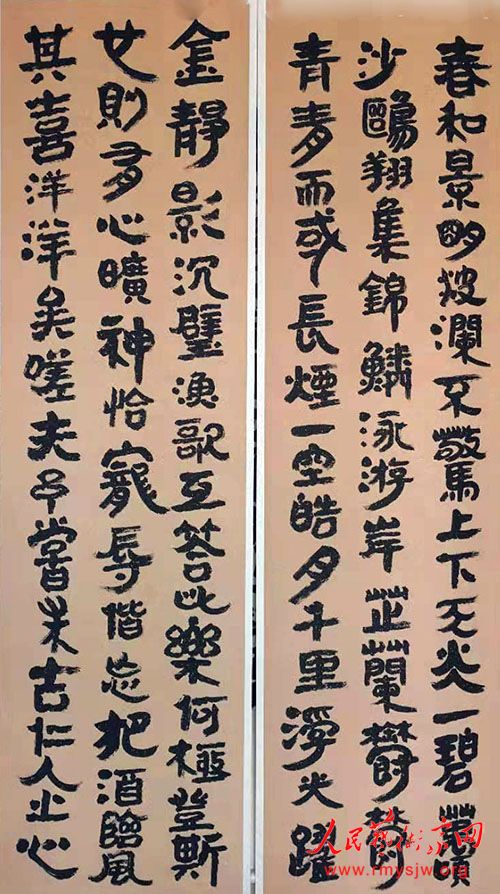 春和景明波瀾不驚上下天光一碧萬頃
沙鷗翔集錦鱗泳游岸芷蘭鬱鬱
青青而或長煙一空皓月千里浮光躍
金靜影沉璧漁歌互答此樂何極登斯
也則有心曠神怡寵辱偕忘把酒臨風
其喜洋洋矣嗟夫予嘗求古仁人之心
人民藝術家网
www.rmysjw.org